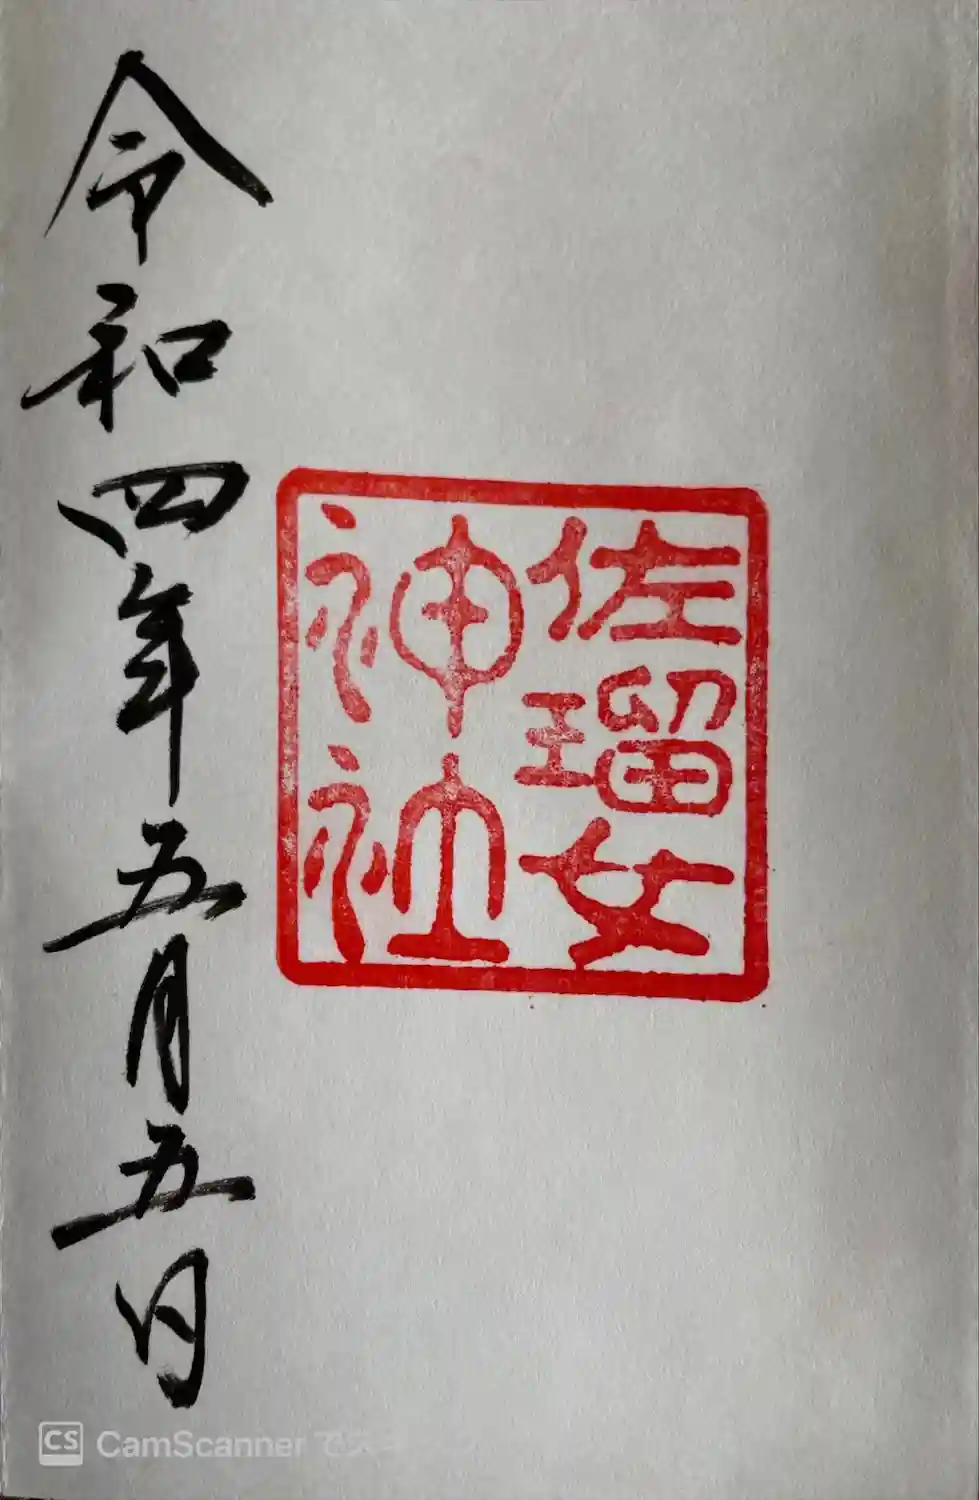 佐瑠女
神社
令和四年五月五日
CS CamScanner で